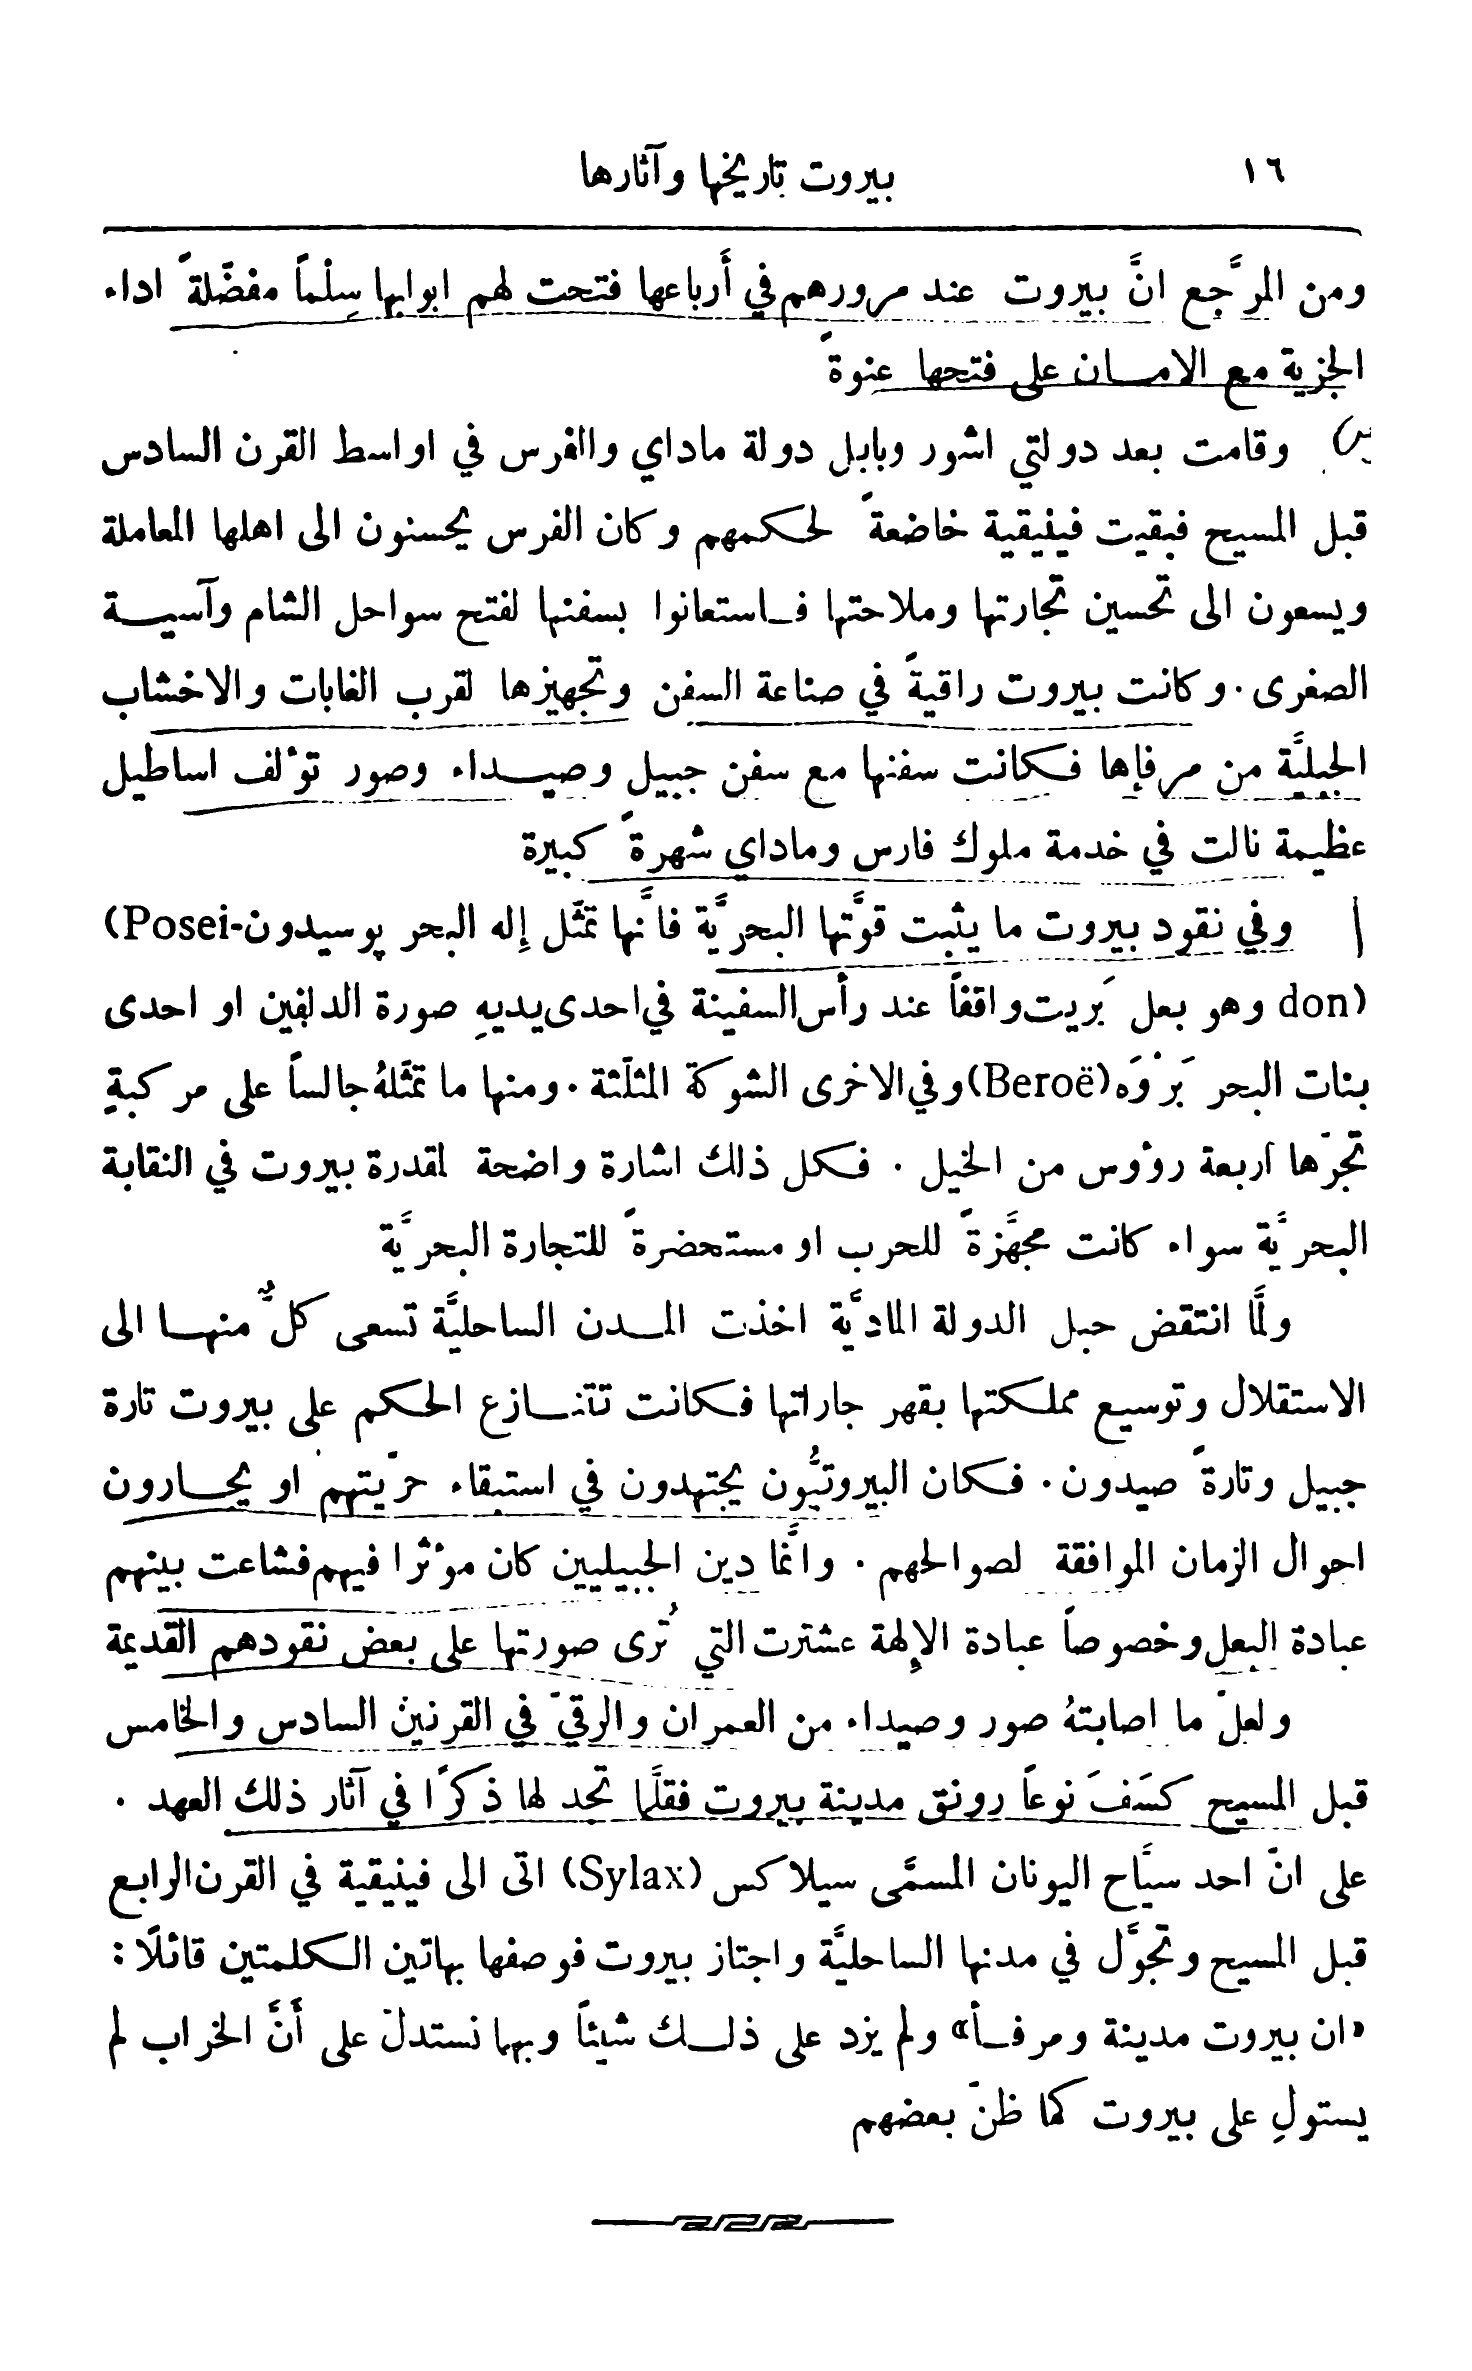 ١٦ بيروت تاريخها وآثارها
ومن المرَّجع انَّ بيروت عند مرورهم في أَرباعها فتحت لهم ابوابها سِلْماً مفضّلةً اداء
الجزية مع الامـان على فتحها عنوةً
وقامت بعد دولتي اشور وبابل دولة ماداي والفرس في اواسط القرن السادس
قبل المسيح فبقيت فينيقية خاضعةً لحكمهم وكان الفرس يحسنون الى اهلها المعاملة
ويسعون الى تحسين تجارتها وملاحتها فـاستعانوا بسفنها لفتح سواحل الشام وآسيـة
الصغرى . وكانت بيروت راقيةً في صناعة السفن وتجهيزها لقرب الغابات والاخشاب
الجبليَّة من مرفإها فكانت سفنها مع سفن جبيل وصيـداء وصور تؤلف اساطيل
عظيمة نالت في خدمة ملوك فارس وماداي شهرةً كبيرة
وفي نقود بيروت ما يثبت قوَّتها البحريَّة فانَّها تمثّل إله البحر پوسيدون (Posei-
don) وهو بعل بَريت واقفاً عند رأس السفينة في احدى يديهِ صورة الدلفين او احدى
بنات البحر بَرْوَه (Beroë) وفي الاخرى الشوكة المثلّثة . ومنها ما تمثّلهُ جالساً على مركبةٍ
تجرّها اربعة رؤوس من الخيل . فكل ذلك اشارة واضحة لمقدرة بيروت في النقابة
البحريَّة سواء كانت مجهَّزةً للحرب او مستحضرةً للتجارة البحريَّة
ولمَّا انتقض حبل الدولة الماديَّة اخذت المـدن الساحليَّة تسعى كلٌّ منهـا الى
الاستقلال وتوسيع مملكتها بقهر جاراتها فكانت تتنـازع الحكم على بيروت تارة
جبيل وتارةً صيدون . فكان البيروتيُّون يجتهدون في استبقاء حرّيتهم او يجـارون
احوال الزمان الموافقة لصوالحهم . وانَّما دين الجبيليين كان مؤثرا فيهم فشاعت بينهم
عبادة البعل وخصوصاً عبادة الإلهة عشترت التي تُرى صورتها على بعض نقودهم القديمة
ولعلّ ما اصابتهُ صور وصيداء من العمران والرقيّ في القرنين السادس والخامس
قبل المسيح كسَفَ نوعاً رونق مدينة بيروت فقلَّما تجد لها ذكرًا في آثار ذلك العهد .
على انّ احد سيَّاح اليونان المسمَّى سيلاكس (Sylax) اتى الى فينيقية في القرن الرابع
قبل المسيح وتجوَّل في مدنها الساحليَّة واجتاز بيروت فوصفها بهاتين الكلمتين قائلًا:
«ان بيروت مدينة ومرفـأ» ولم يزد على ذلـك شيئاً وبهما نستدلّ على أَنَّ الخراب لم
يستولِ على بيروت كما ظنّ بعضهم